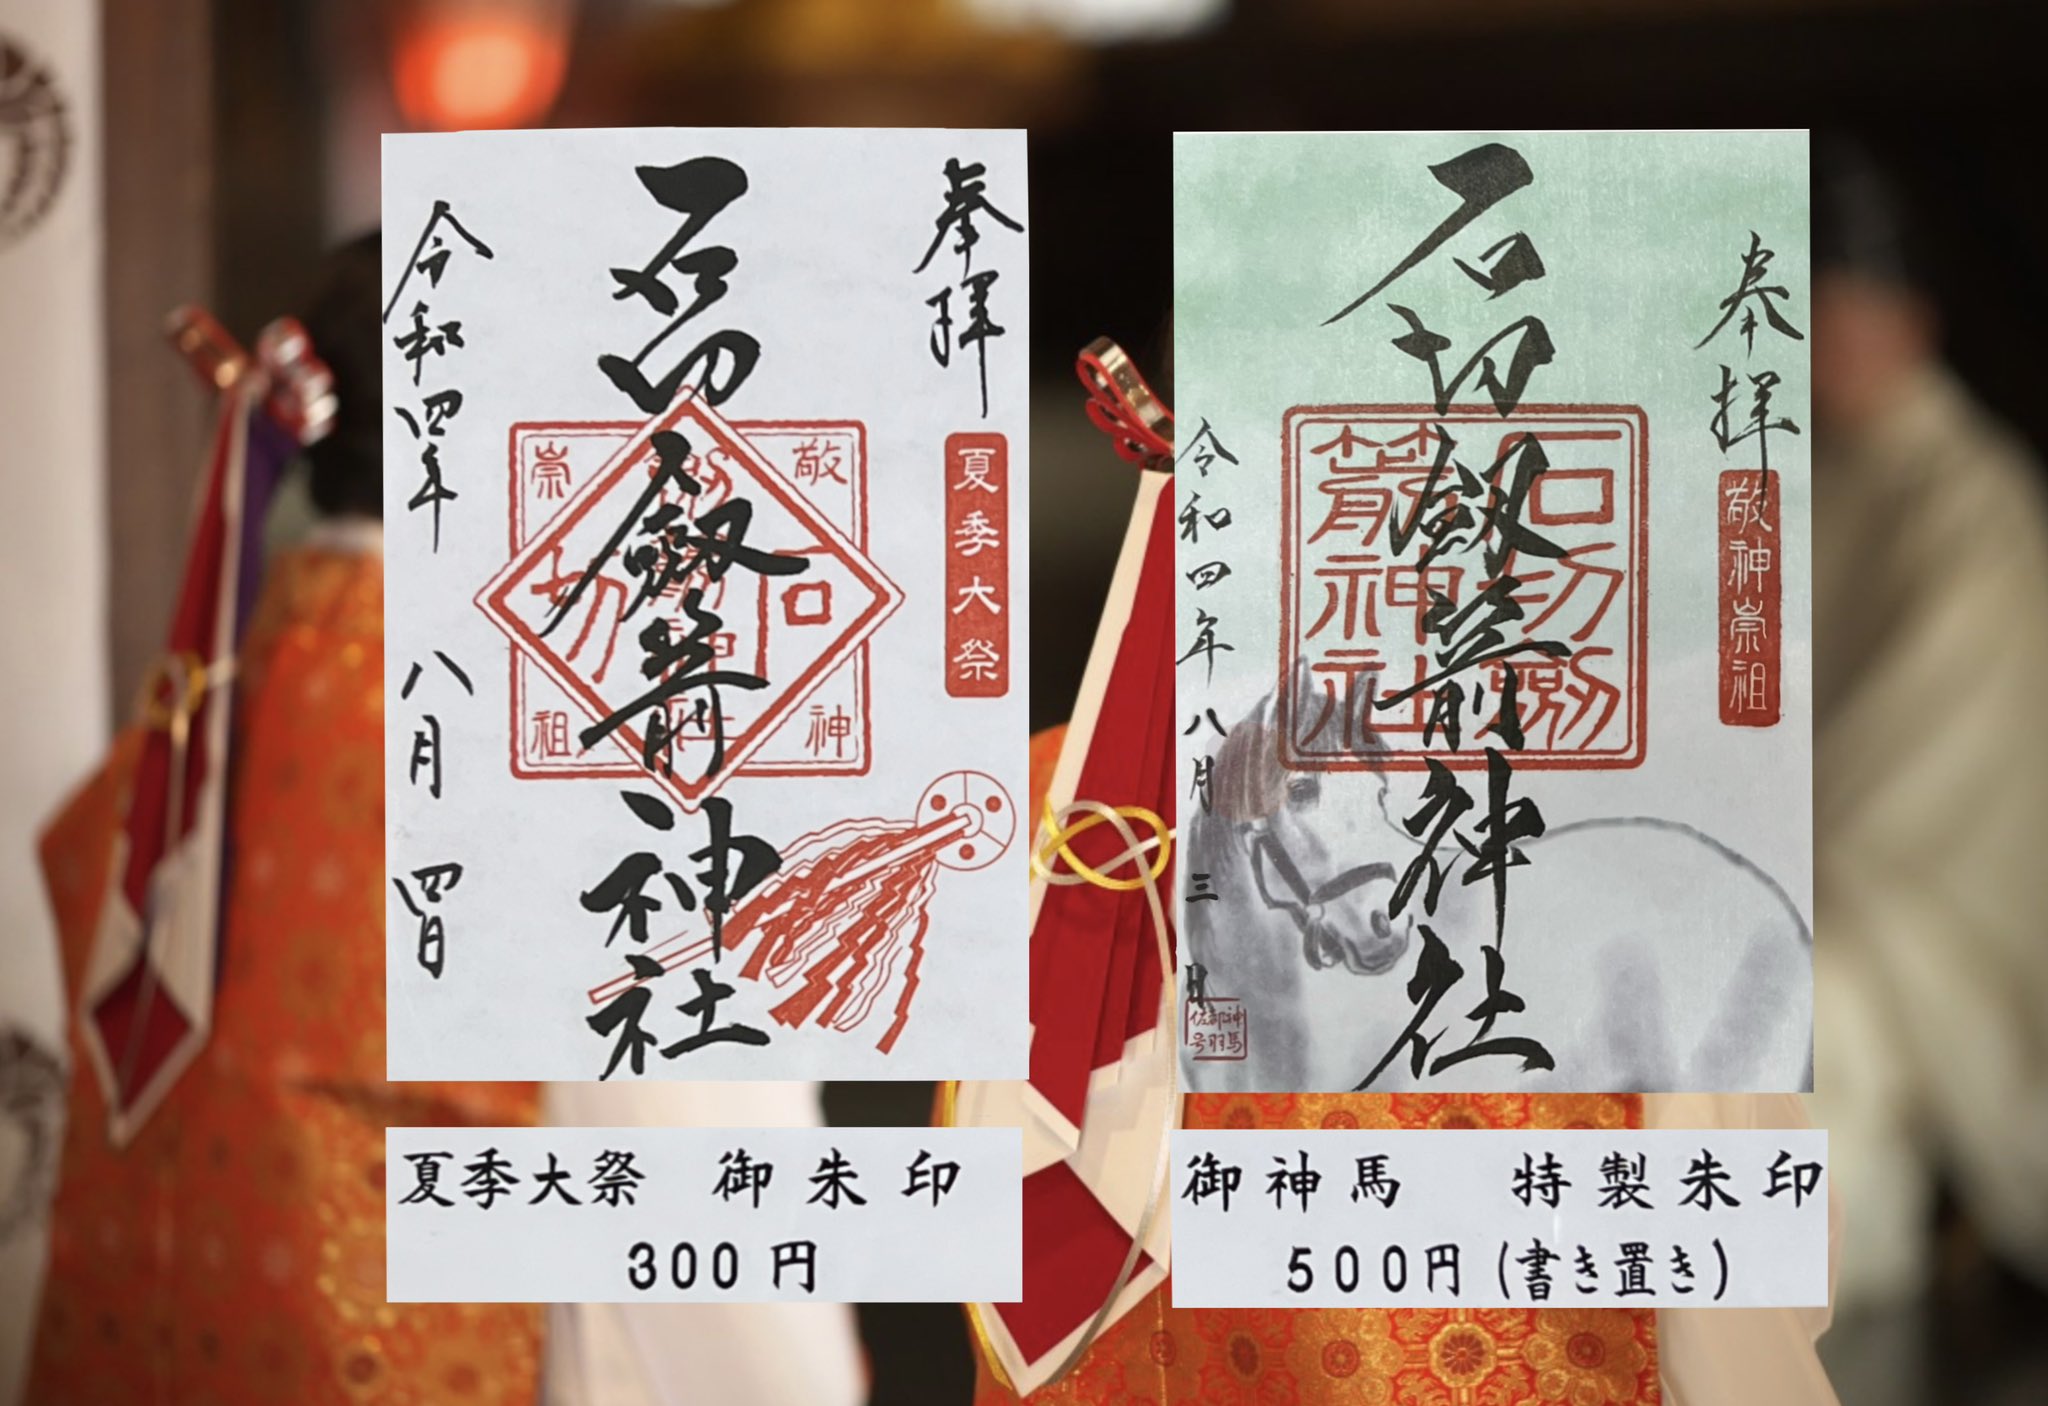 奉拝
夏季大祭
石切劔箭神社
敬神崇祖
石切
劔箭神社
令和四年 八月 四日
夏季大祭 御朱印
300円
奉拝
敬神崇祖
石切劔箭神社
石切劔
箭神社
令和四年八月三日
神馬
都羽
佐号
御神馬 特製朱印
500円(書き置き)